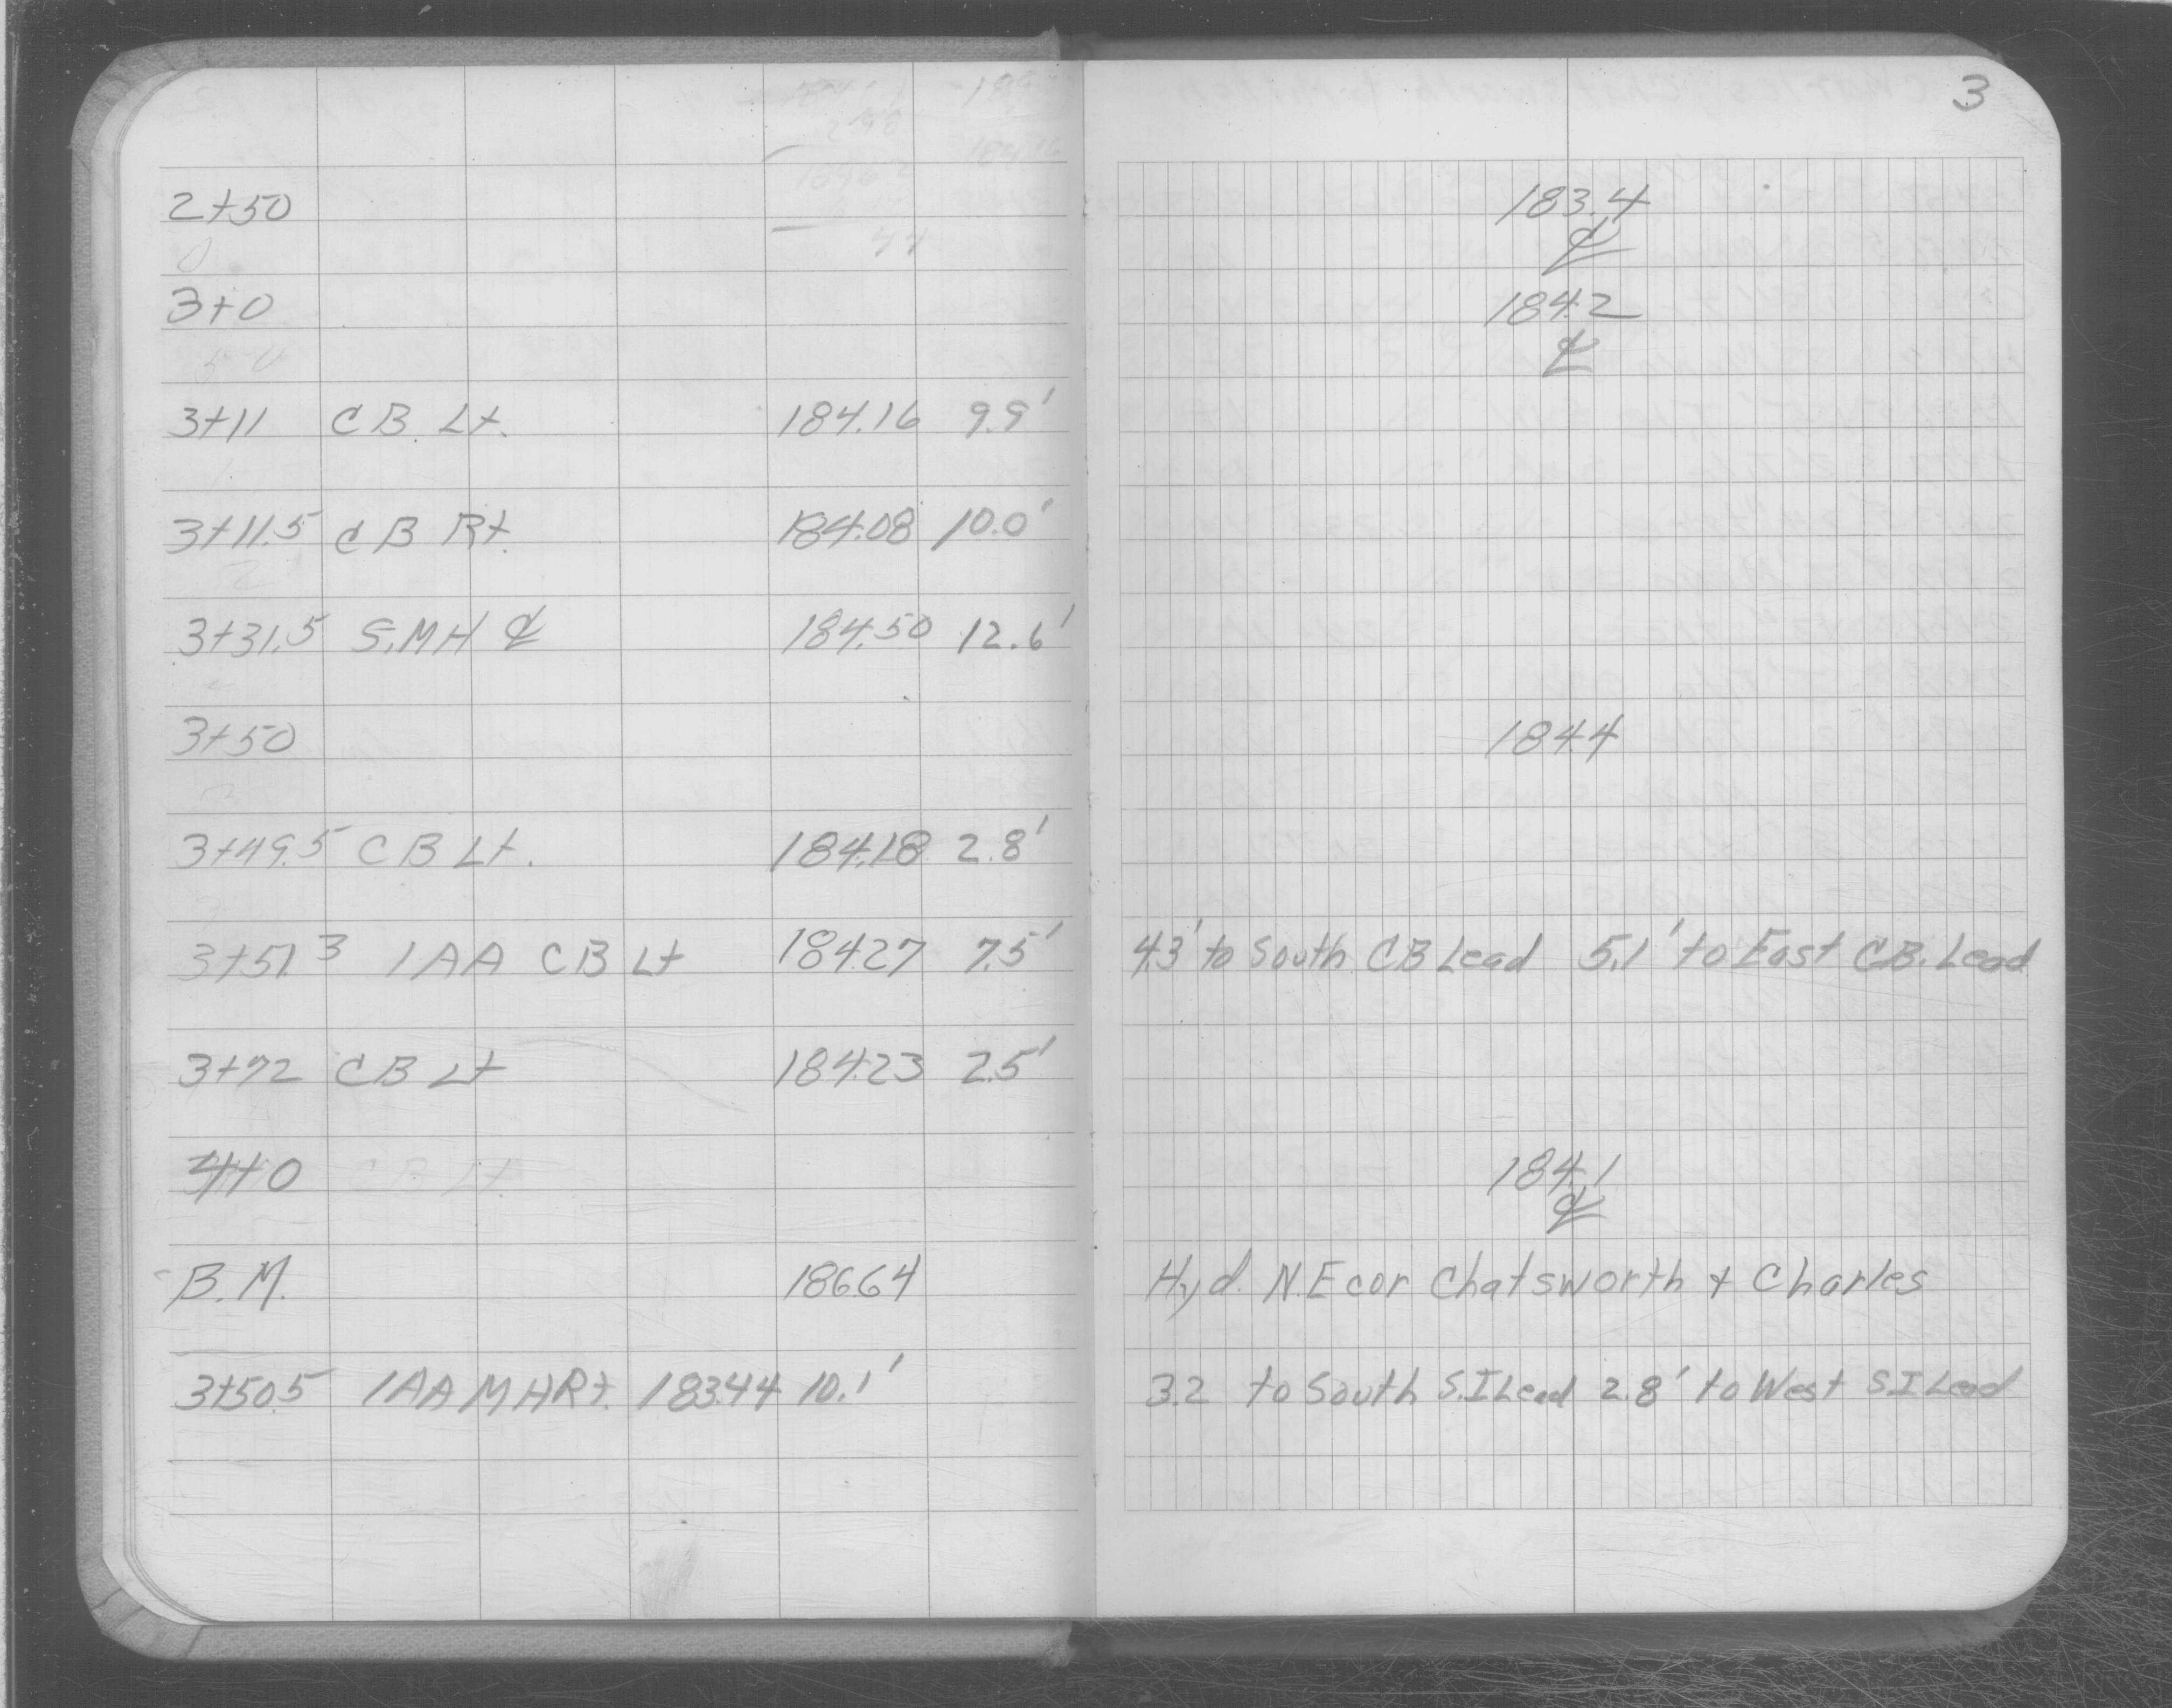 3
2+50 183.4
℄
3+0 184.2
℄
3+11 CB Lt. 184.16 9.9'
3+11.5 CB Rt. 184.08 10.0'
3+31.5 S.MH ℄ 184.50 12.6'
3+50 184.4
3+49.5 CB Lt. 184.18 2.8'
3+51.3 1AA CB Lt 184.27 7.5' 4.3' to South CB Lead 5.1' to East C.B. Lead
3+72 CB Lt 184.23 2.5'
4+0 184.1
℄
B.M. 186.64 Hyd. N.E cor Chatsworth + Charles
3+50.5 1AA MH Rt. 183.44 10.1' 3.2 to South S.I Lead 2.8' to West S.I Lead